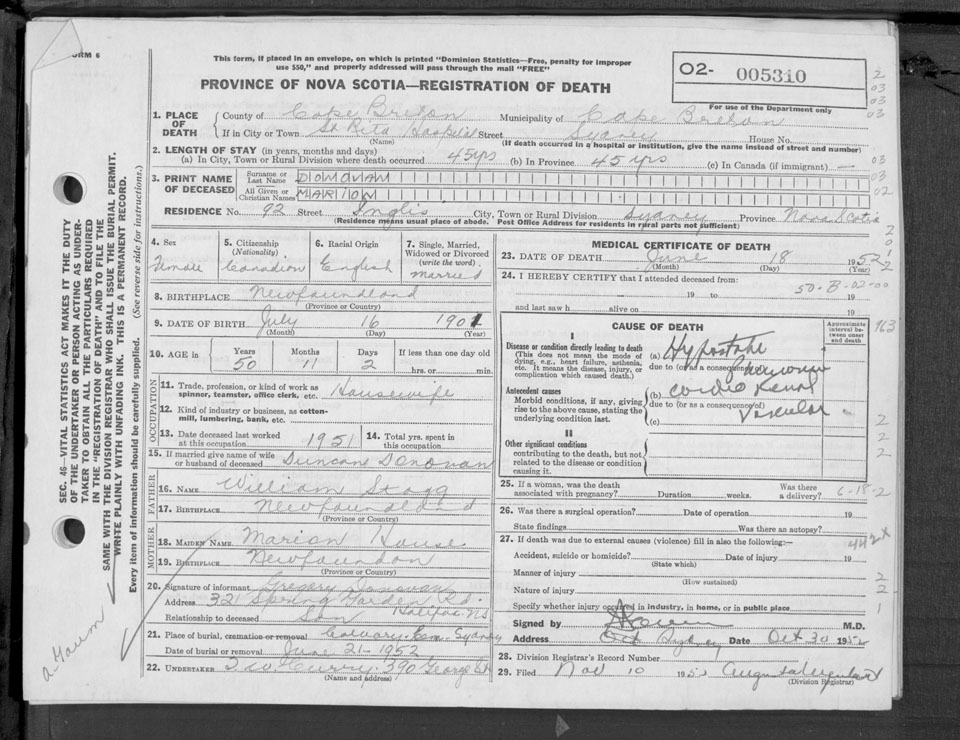 FORM 6
This form, if placed in an envelope, on which is printed "Dominion Statistics—Free, penalty for improper
use $50," and properly addressed will pass through the mail "FREE"
PROVINCE OF NOVA SCOTIA—REGISTRATION OF DEATH
O2- 005310
For use of the Department only
1. PLACE OF DEATH
County of Cape Breton Municipality of Cape Breton
If in City or Town St Rita Hospital Street Sydney House No.
(Name) (If death occurred in a hospital or institution, give the name instead of street and number)
2. LENGTH OF STAY (in years, months and days)
(a) In City, Town or Rural Division where death occurred 45 yrs (b) In Province 45 yrs (c) In Canada (if immigrant) —
3. PRINT NAME OF DECEASED
Surname or Last Name DONOVAN
All Given or Christian Names MARION
RESIDENCE No. 92 Street Inglis City, Town or Rural Division Sydney Province Nova Scotia
(Residence means usual place of abode. Post Office Address for residents in rural parts not sufficient)
4. Sex Female
5. Citizenship (Nationality) Canadian
6. Racial Origin English
7. Single, Married, Widowed or Divorced (write the word) married
8. BIRTHPLACE Newfoundland
(Province or Country)
9. DATE OF BIRTH July 16 1901
(Month) (Day) (Year)
10. AGE in Years 50 Months 11 Days 2 If less than one day old
hrs. or min.
OCCUPATION
11. Trade, profession, or kind of work as spinner, teamster, office clerk, etc. Housewife
12. Kind of industry or business, as cotton-mill, lumbering, bank, etc.
13. Date deceased last worked at this occupation 1951 14. Total yrs. spent in this occupation
15. If married give name of wife or husband of deceased Duncan Donovan
FATHER
16. NAME William Stagg
17. BIRTHPLACE Newfoundland
(Province or Country)
MOTHER
18. MAIDEN NAME Marion House
19. BIRTHPLACE Newfoundon
(Province or Country)
20. Signature of informant Gregory Donovan
Address 321 Spring Garden Rd. Halifax NS
Relationship to deceased Son
21. Place of burial, cremation or removal Calvary Cem. Sydney
Date of burial or removal June 21-1952
22. UNDERTAKER T. W. Curry. 390 George St
(Name and address)
MEDICAL CERTIFICATE OF DEATH
23. DATE OF DEATH June 18 1952
(Month) (Day) (Year)
24. I HEREBY CERTIFY that I attended deceased from:
50-B-02-00
19 to 19
and last saw h alive on 19
CAUSE OF DEATH
Approximate interval between onset and death
I
Disease or condition directly leading to death
(This does not mean the mode of dying, e.g., heart failure, asthenia, etc. It means the disease, injury, or complication which caused death.)
(a) Hypostatic
due to (or as a consequence of) Pneumonia
Antecedent causes
Morbid conditions, if any, giving rise to the above cause, stating the underlying condition last.
(b) Cardio Renal
due to (or as a consequence of) Vascular
(c)
II
Other significant conditions
contributing to the death, but not related to the disease or condition causing it.
25. If a woman, was the death associated with pregnancy? Duration weeks. Was there a delivery? 6-18-2
26. Was there a surgical operation? Date of operation 19
State findings Was there an autopsy?
27. If death was due to external causes (violence) fill in also the following:— 442x
Accident, suicide or homicide? Date of injury 19
(State which)
Manner of injury
(How sustained)
Nature of injury
Specify whether injury occurred in industry, in home, or in public place
Signed by M.D.
Address Sydney Date Oct 30 1952
28. Division Registrar's Record Number
29. Filed Nov 10 1952
(Division Registrar)
SEC. 46—VITAL STATISTICS ACT MAKES IT THE DUTY
OF THE UNDERTAKER OR PERSON ACTING AS UNDER-
TAKER TO OBTAIN ALL THE PARTICULARS REQUIRED
IN THE "REGISTRATION OF DEATH" AND TO FILE THE
SAME WITH THE DIVISION REGISTRAR WHO SHALL ISSUE THE BURIAL PERMIT.
WRITE PLAINLY WITH UNFADING INK. THIS IS A PERMANENT RECORD.
Every item of information should be carefully supplied. (See reverse side for instructions.)
2
03
03
03
03
03
02
2
0
1
2
163
2
2
2
2
2
1